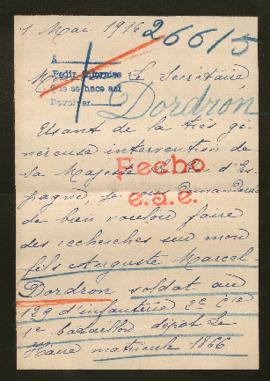 1 Mai 1916
26615
A
Pedir informes
Que se hace así
Devolver
Le Secrétaire
Dordrón
Usant de la très gé-
néreuse intervention de
Sa Majesté le Roi d'Es-
pagne, je vous demanderai
de bien vouloir faire
Fecho
e.s.e.
des recherches sur mon
fils Auguste Marcel
Dordron soldat au
129 d'infanterie 2e Cie
1e bataillon dépôt Le
Havre matricule 1866